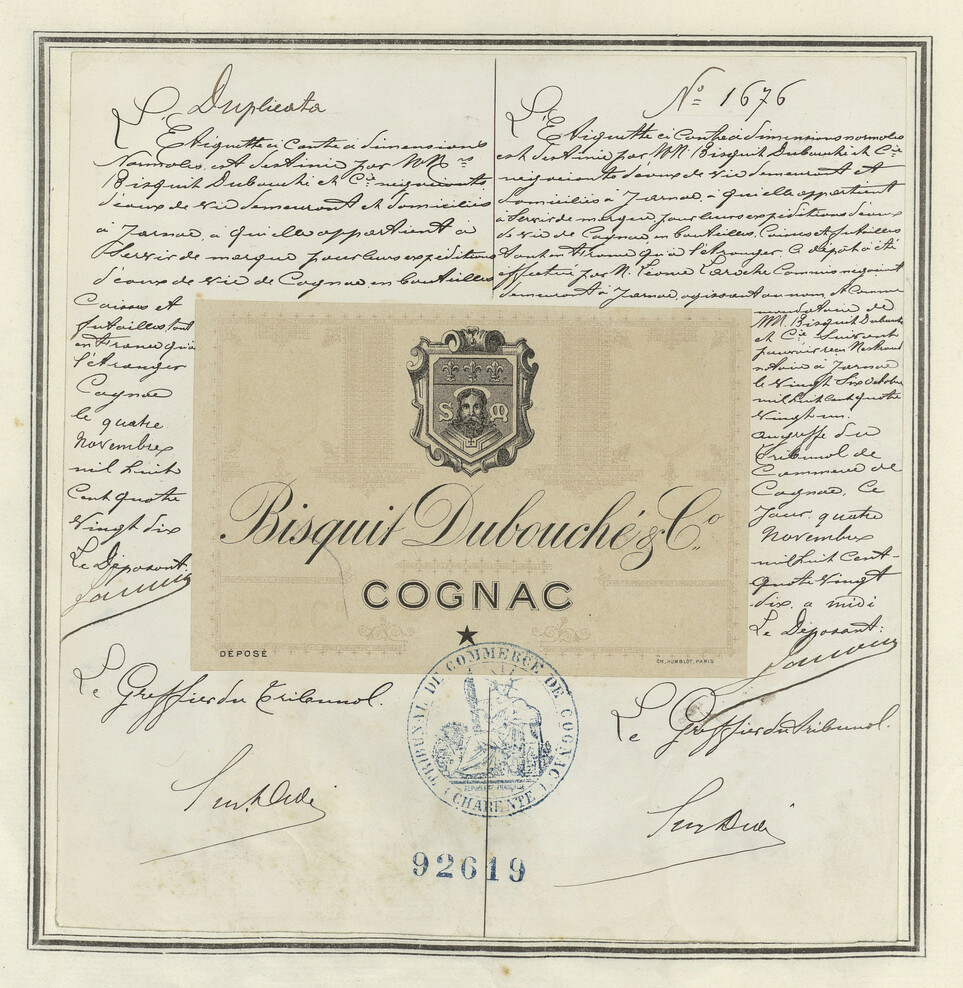 Duplicata
L'Etiquette ci contre à dimensions
Normales, est destinée par MM rs
Bisquit Dubouché et Cie négociants
d'eaux de vie demeurant et domiciliés
à Jarnac, à qui elle appartient à
Servir de marque pour leurs expéditions
d'eaux de vie de Cognac en bouteilles
Caisses et
futailles tant
en France qu'à
l'étranger
Cognac
le quatre
Novembre
mil huit
Cent quatre
Vingt dix
Le Déposant
Le Greffier du Tribunal.
No 1676
L'Etiquette ci contre à dimensions normales
est destinée par MM. Bisquit Dubouché et Cie
négociants d'eaux de vie demeurant et
domiciliés à Jarnac, à qui elle appartient
à Servir de marque pour leurs expéditions d'eaux
de vie de Cognac en bouteilles, Caisses et futailles
tant en France qu'à l'étranger. Ce dépôt a été
effectué par M. Léonce Laroche Commis négociant
demeurant à Jarnac, agissant au nom et Comme
mandataire de
MM. Bisquit Dubouché
et Cie Suivant
pouvoir reçu
notaire à Jarnac
le Vingt Six Octobre
mil huit Cent quatre
Vingt
au greffe du
Tribunal de
Commerce de
Cognac, Ce
Jour quatre
Novembre
mil huit Cent
Quatre Vingt
dix, à midi
Le Déposant:
Le Greffier du Tribunal.
S M
Bisquit Dubouché & Co.
COGNAC
DÉPOSÉ
CH. HUMBLOT, PARIS
TRIBUNAL DE COMMERCE DE COGNAC
RÉPUBLIQUE FRANÇAISE
(CHARENTE)
92619